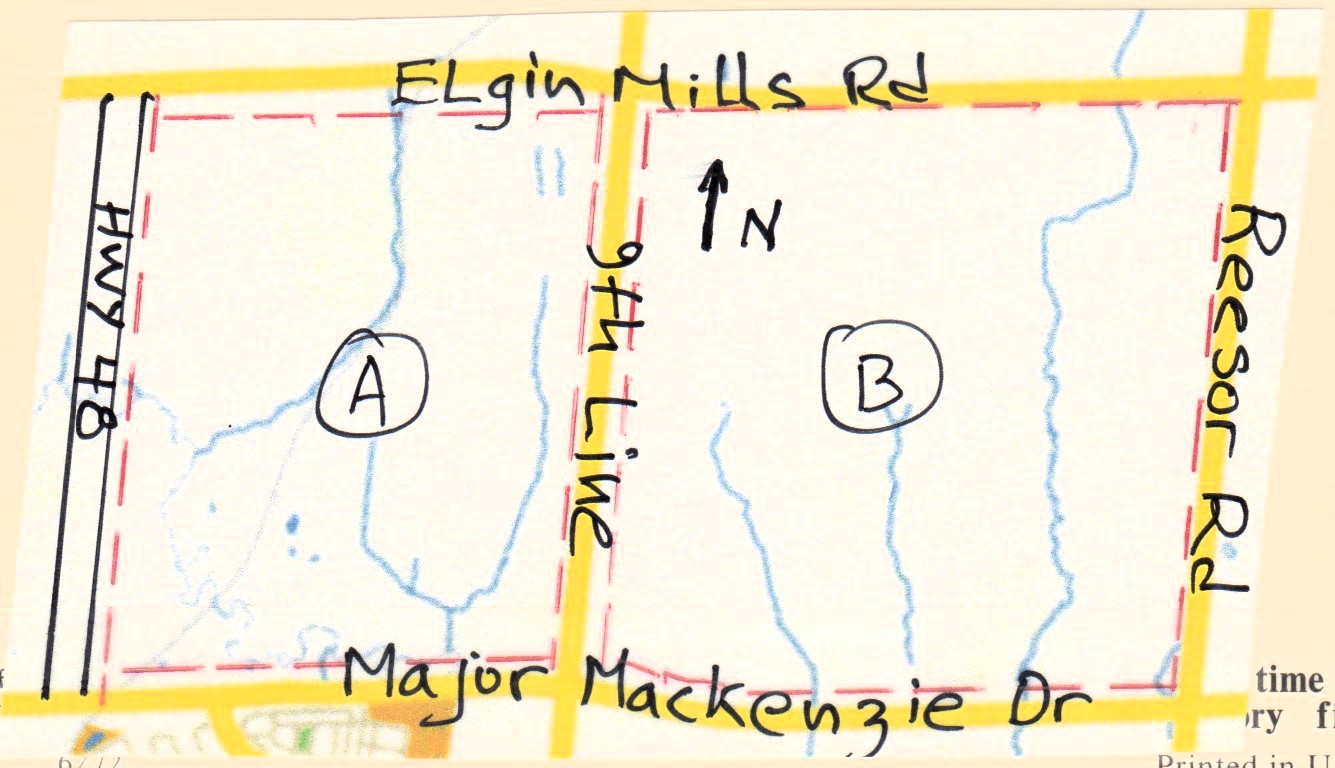 ELgin Mills Rd
HWY 48
9th Line
N
Reesor Rd
A
B
Major Mackenzie Dr
time
ory fi
Printed in U